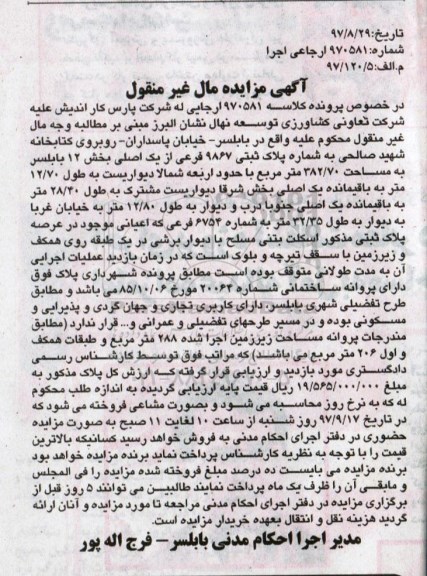 تاریخ:۹۷/۸/۲۹
شماره:۹۷۰۵۸۱ ارجاعی اجرا
م.الف:۹۷/۱۲۰/۵
آگهی مزایده مال غیر منقول
در خصوص پرونده کلاسه ۹۷۰۵۸۱ ارجایی له شرکت پارس کار اندیش علیه
شرکت تعاونی کشاورزی توسعه نهال نشان البرز مبنی بر مطالبه وجه مال
غیر منقول محکوم علیه واقع در بابلسر- خیابان پاسداران- روبروی کتابخانه
شهید صالحی به شماره پلاک ثبتی ۹۸۶۷ فرعی از یک اصلی بخش ۱۲ بابلسر
به مساحت ۳۸۲/۷۰ متر مربع با حدود اربعه شمالا دیواریست به طول ۱۲/۷۰
متر به باقیمانده یک اصلی بخش شرقا دیواریست مشترک به طول ۲۸/۳۰ متر
به باقیمانده یک اصلی جنوبا درب و دیوار به طول ۱۲/۸۰ متر به خیابان غربا
به دیوار به طول ۳۲/۳۵ متر به شماره ۶۷۵۳ فرعی که اعیانی موجود در عرصه
پلاک ثبتی مذکور اسکلت بتنی مسلح با دیوار برشی در یک طبقه روی همکف
و زیرزمین با سقف تیرچه و بلوک است که در زمان بازدید عملیات اجرایی
آن به مدت طولانی متوقف بوده است مطابق پرونده شهرداری پلاک فوق
دارای پروانه ساختمانی شماره ۲۰۰۶۳ مورخ ۸۵/۱۰/۰۶ می باشد و مطابق
طرح تفضیلی شهری بابلسر، دارای کاربری تجاری و جهان گردی و پذیرایی و
مسکونی بوده و در مسیر طرحهای تفضیلی و عمرانی و... قرار ندارد (مطابق
مندرجات پروانه مساحت زیرزمین اجرا شده ۲۸۸ متر مربع و طبقات همکف
و اول ۲۰۶ متر مربع می باشند) که مراتب فوق توسط کارشناس رسمی
دادگستری مورد بازدید و ارزیابی قرار گرفته که ارزش کل پلاک مذکور به
مبلغ ۱۹/۵۶۵/۰۰۰/۰۰۰ ریال قیمت پایه ارزیابی گردیده به اندازه طلب محکوم
له که به نرخ روز محاسبه می شود و بصورت مشاعی فروخته می شود که
در تاریخ ۹۷/۹/۱۷ روز شنبه از ساعت ۱۰ لغایت ۱۱ صبح به صورت مزایده
حضوری در دفتر اجرای احکام مدنی به فروش خواهد رسید کسانیکه بالاترین
قیمت را با توجه به نظریه کارشناس پرداخت نماید برنده مزایده خواهد بود
برنده مزایده می بایست ده درصد مبلغ فروخته شده مزایده را فی المجلس
و مابقی آن را ظرف یک ماه پرداخت نمایند طالبین می توانند ۵ روز قبل از
برگزاری مزایده در دفتر اجرای احکام مدنی مراجعه تا مورد مزایده و آنان ارائه
گردید هزینه نقل و انتقال بعهده خریدار مزایده است.
مدیر اجرا احکام مدنی بابلسر- فرج اله پور